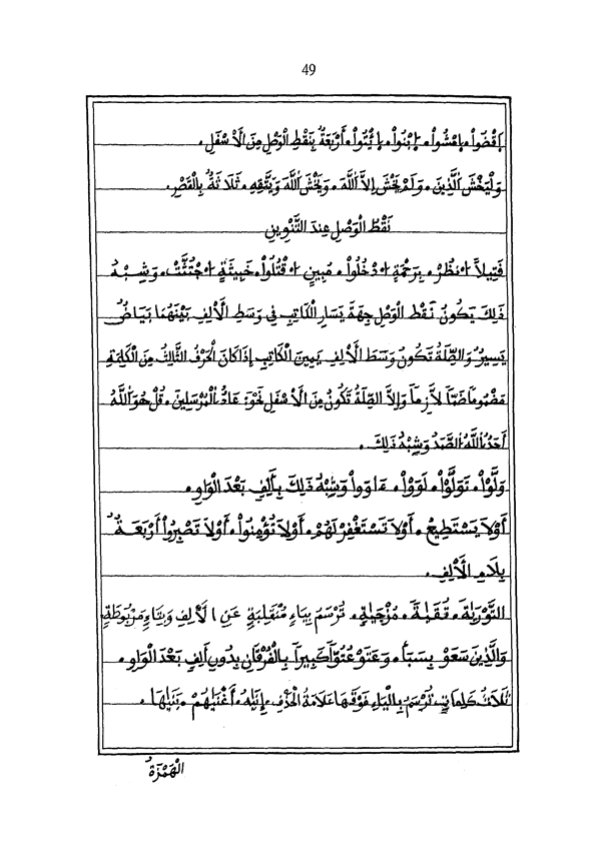 49
اِقْضُواْ. اِمْشُواْ. اِبْنُواْ. اِيتُواْ. أَرْبَعَةٌ بِنَقْطِ الْوَصْلِ مِنَ الْأَسْفَلِ.
وَلْيَخْشَ الَّذِينَ. وَلَمْ يَخْشَ إِلَّا اللَّهَ. وَيَخْشَ اللَّهَ وَيَتَّقِهِ. ثَلَاثَةٌ بِالْقَصْرِ.
نَقْطُ الْوَصْلِ عِندَ التَّنْوِينِ
فَتِيلاً اَ نظُرْ. بِرَحْمَةٍ اُ دْخُلُواْ. مُبِينٍ اُ قْتُلُواْ. خَبِيثَةٍ اُ جْتُثَّتْ. وَشِبْهُ
ذَلِكَ يَكُونُ نَقْطُ الْوَصْلِ جِهَةَ يَسَارِ الْكَاتِبِ فِي وَسَطِ الْأَلِفِ بَيْنَهُمَا بَيَاضٌ
يَسِيرٌ وَالصِّلَةُ تَكُونُ وَسَطَ الْأَلِفِ يَمِينَ الْكَاتِبِ إِذَا كَانَ الْحَرْفُ الثَّالِثُ مِنَ الْكَلِمَةِ
مَضْمُوماً ضَمّاً لَازِماً وَإِلَّا الصِّلَةُ تَكُونُ مِنَ الْأَسْفَلِ نَحْوَ: عَادٌ الْمُرْسَلِينَ. قُلْ هُوَ اللَّهُ
أَحَدٌ اللَّهُ الصَّمَدُ وَشِبْهُ ذَلِكَ.
وَلَّوْاْ. تَوَلَّوْاْ. لَوَوْاْ. ءَاوَواْ وَشِبْهُ ذَلِكَ بِأَلِفٍ بَعْدَ الْوَاوِ.
أَوْلَا يَسْتَطِيعُ. أَوْلَا تَسْتَغْفِرْ لَهُمْ. أَوْلَا تُؤْمِنُواْ. أَوْلَا تَصْبِرُواْ أَرْبَعَةٌ
بِلَامِ الْأَلِفِ.
التَّوْرَيٰةَ. تُقَيٰةً. مُزْجَيٰةٍ. تُرْسَمُ بِيَاءٍ مُنْقَلِبَةٍ عَنِ الْأَلِفِ وَبِتَاءٍ مَرْبُوطَةٍ.
وَالَّذِينَ سَعَوْ بِسَبَأ. وَعَتَوْ عُتُوّاً كَبِيراً بِالْفُرْقَانِ بِدُونِ أَلِفٍ بَعْدَ الْوَاوِ.
ثَلَاثُ كَلِمَاتٍ تُرْسَمُ بِالْيَاءِ فَوْقَهَا عَلَامَةُ الْحَذْفِ. إِنَيٰهُ. أَغْنَيٰهُمْ. بَنَيٰهَا.
الْهَمْزَةُ